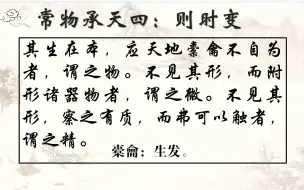 常物承天四：则时变
其生在本，应天地橐龠不自为
者，谓之物。不见其形，而附
形诸器物者，谓之微。不见其
形，察之有质，而弗可以触者，
谓之精。
橐龠：生发。